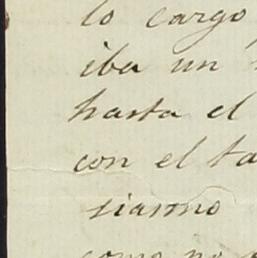 lo cargó
iba un
hasta el
con el ta
siasmo
como no